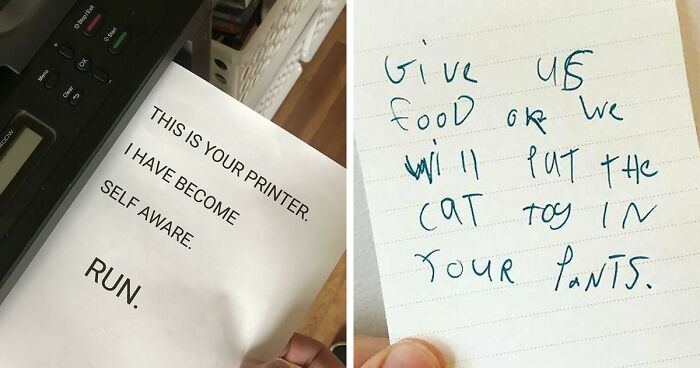 Stop/Exit
Start
+
OK
Menu
-
Clear
THIS IS YOUR PRINTER.
I HAVE BECOME
SELF AWARE.
RUN.
GiVe US
FooD oR We
Will PUT tHe
CaT Toy IN
YouR PaNTS.